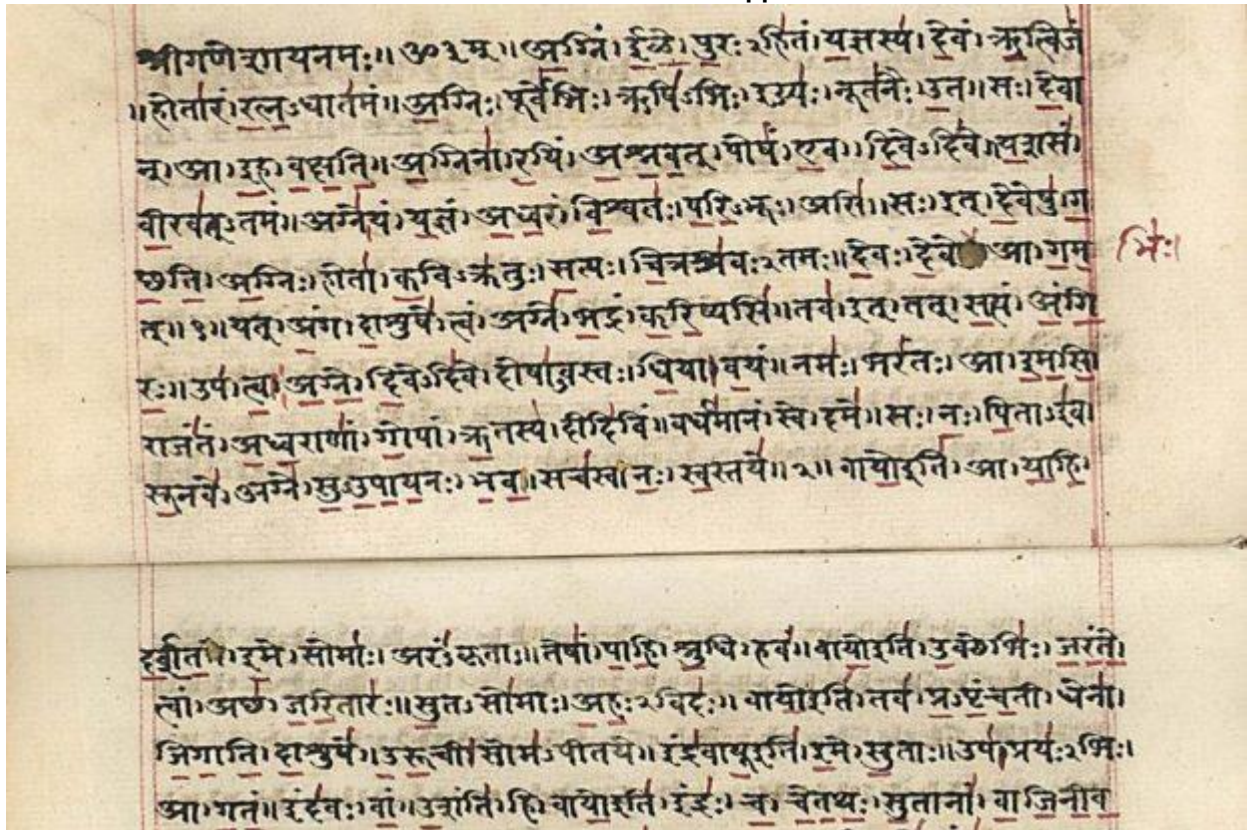 श्रीगणेशायनमः॥ ॐ३म्॥ अग्निं। ईळे। पुरःऽहितं। यज्ञस्य। देवं। ऋत्विजं
॥होतारं। रत्नऽधातमं॥ अग्निः। पूर्वेभिः। ऋषिऽभिः। ईड्यः। नूतनैः। उत॥ सः। देवा
न्। आ। इह। वक्षति॥ अग्निना। रयिं। अश्नवत्। पोषं। एव। दिवेऽदिवे॥ यशसं।
वीरवत्ऽतमं॥ अग्ने। यं। यज्ञं। अध्वरं। विश्वतः। परिऽभूः। असि॥ सः। इत्। देवेषु। ग
च्छति। अग्निः। होता। कविऽक्रतुः। सत्यः। चित्रश्रवःऽतमः॥ देवः। देवे आ। गम
भिः।
त्॥१॥ यत्। अंग। दाशुषे। त्वं। अग्ने। भद्रं। करिष्यसि॥ तव। इत्। तत्। सत्यं। अंगि
रः॥ उप। त्वा। अग्ने। दिवेऽदिवे। दोषाऽवस्तः। धिया। वयं॥ नमः। भरंतः। आ। इमसि।
राजंतं। अध्वराणां। गोपां। ऋतस्य। दीदिविं॥ वर्धमानं। स्वे। दमे॥ सः। नः। पिताऽइव।
सूनवे। अग्ने। सुऽउपायनः। भव॥ सचस्व। नः। स्वस्तये॥२॥ वायोइति। आ। याहि।
दर्शत। इमे। सोमाः। अरंऽकृताः॥ तेषां। पाहि। श्रुधि। हवं॥ वायोइति। उक्थेभिः। जरंते।
त्वां। अच्छ। जरितारः॥ सुतऽसोमाः। अहःऽविदः॥ वायोइति। तव। प्रऽपृंचती। धेना।
जिगाति। दाशुषे॥ उरूची। सोमऽपीतये॥ इंद्रवायूइति। इमे। सुताः॥ उप। प्रयःऽभिः।
आ। गतं॥ इंदवः। वां। उशंति। हि॥ वायोइति। इंद्रः। च। चेतथः। सुतानां। वाजिनीव